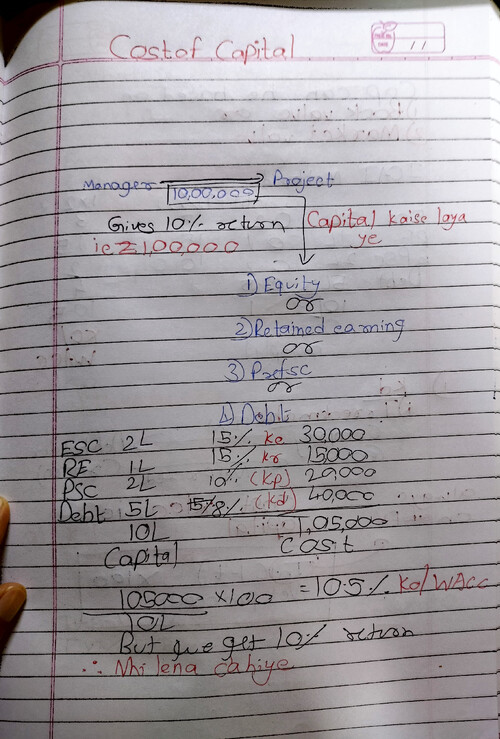 Cost of Capital
11
Manager → Project
10,00,000
Gives 10% return Capital kaise laya
ie ₹ 1,00,000 ye
1) Equity
or
2) Retained earning
or
3) Prefsc
or
4) Debits
ESC 2L 15% ke 30,000
RE 1L 15% kr 15000
PSC 2L 10% (kp) 20,000
Debt 5L 8% (kd) 40,000
10L 1,05,000
Capital Cost
105000 × 100 = 10.5% Ko/WACC
10L
But give get 10% return
∴ Nhi lena cahiye